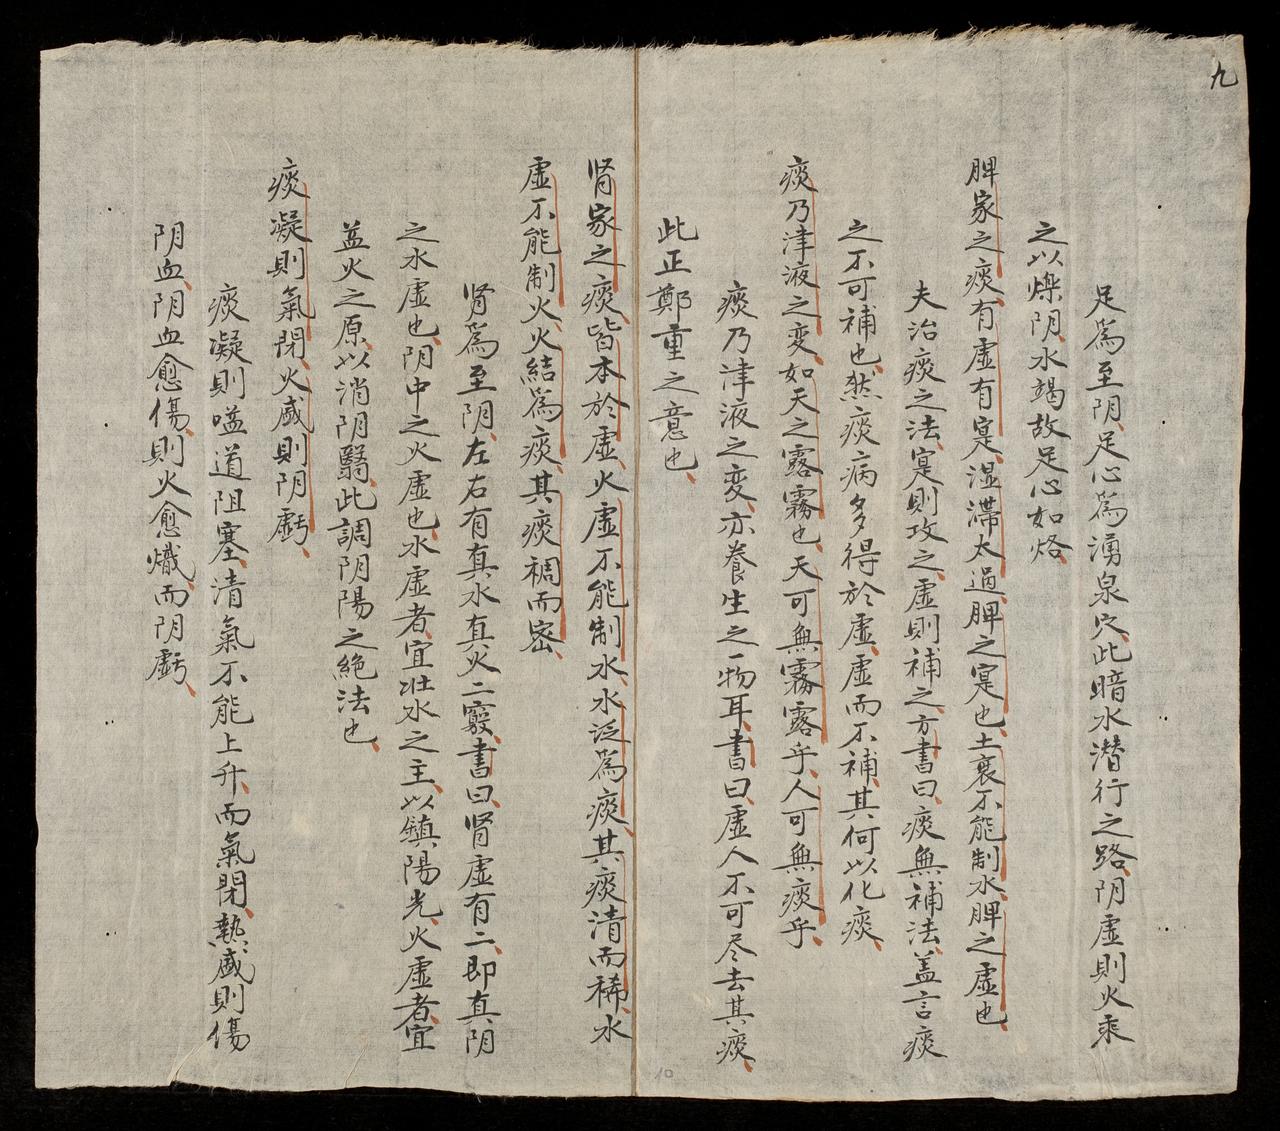 九
足為至阴、足心為湧泉穴、此暗水潜行之路、阴虚则火乘
之以爍阴、水竭故足心如烙
脾家之痰、有虚有寔、湿滞太過、脾之寔也、土衰不能制水、脾之虚也、
夫治痰之法、寔则攻之、虚则補之、方書曰、痰無補法、盖言痰
之不可補也、然痰病多得於虚、虚而不補、其何以化痰、
痰乃津液之变、如天之露霧也、天可無霧露乎、人可無痰乎、
痰乃津液之变、亦養生之一物耳、書曰、虚人不可尽去其痰、
此正鄭重之意也、
肾家之痰、皆本於虚、火虚不能制水、水泛為痰、其痰清而稀、水
虚不能制火、火結為痰、其痰裯而密、
肾為至阴、左右有真水真火二竅、書曰、肾虚有二、即真阴
之水虚也、阴中之火虚也、水虚者、宜壮水之主、以鎮陽光、火虚者、宜
益火之原、以消阴翳、此調阴陽之絶法也、
痰凝則氣閉、火盛則阴虧、
痰凝則嗌道阻塞、清氣不能上升、而氣閉、熱盛則傷
阴血、阴血愈傷、則火愈熾、而阴虧、
10